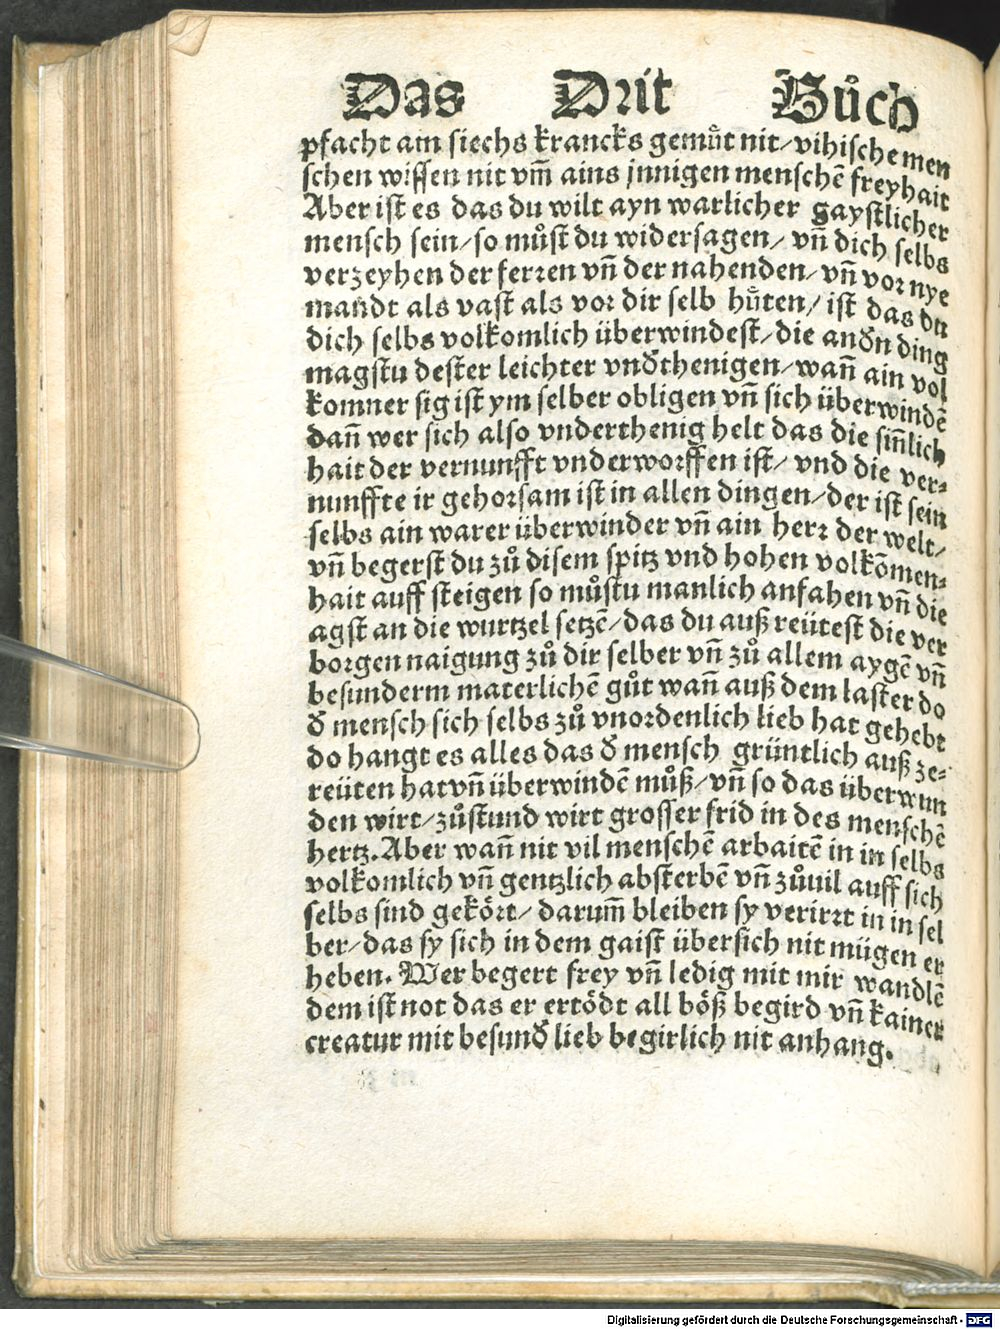 Das Drit Bůch
pfacht am siechs krancks gemuͤt nit/vihische men
schen wissen nit vm̄ ains jnnigen menschē freyhait
Aber ist es das du wilt ayn warlicher gaystlicher
mensch sein/so můst du widersagen/vn̄ dich selbs
verzeyhen der ferren vn̄ der nahenden/vn̄ vor nye
mandt als vast als vor dir selb huͤten/ist das du
dich selbs volkomlich überwindest/die andn ding
magstu dester leichter vndthenigen/wan̄ ain vol
komner sig ist ym selber obligen vn̄ sich überwindē
dan̄ wer sich also vnderthenig helt das die sin̄lich
hait der vernunfft vnderworffen ist/vnd die ver⸗
nunffte ir gehorsam ist in allen dingen/der ist sein
selbs ain warer überwinder vn̄ ain herr der welt/
vn̄ begerst du zů disem spitz vnd hohen volkōmen⸗
hait auff steigen so můstu manlich anfahen vn̄ die
agst an die wurtzel setzē/das du auß reütest die ver
borgen naigung zů dir selber vn̄ zů allem aygē vn̄
besunderm materlichē gůt wan̄ auß dem laster do
d mensch sich selbs zů vnordenlich lieb hat gehebt
do hangt es alles das d mensch gründtlich auß ze⸗
reüten hat vn̄ überwindē můß/vn̄ so das überwun
den wirt/zůstund wirt grosser frid in des menschē
hertz. Aber wan̄ nit vil menschē arbaitē in in selbs
volkomlich vn̄ gentzlich absterbē vn̄ zůuil auff sich
selbs sind gekoͤrt/darum̄ bleiben sy verirrt in in sel
ber/das sy sich in dem gaist übersich nit mügen er
heben. Wer begert frey vn̄ ledig mit mir wandlē
dem ist not das er ertoͤdt all boͤß begird vn̄ kainer
creatur mit besund lieb begirlich nit anhang.
Digitalisierung gefördert durch die Deutsche Forschungsgemeinschaft - DFG